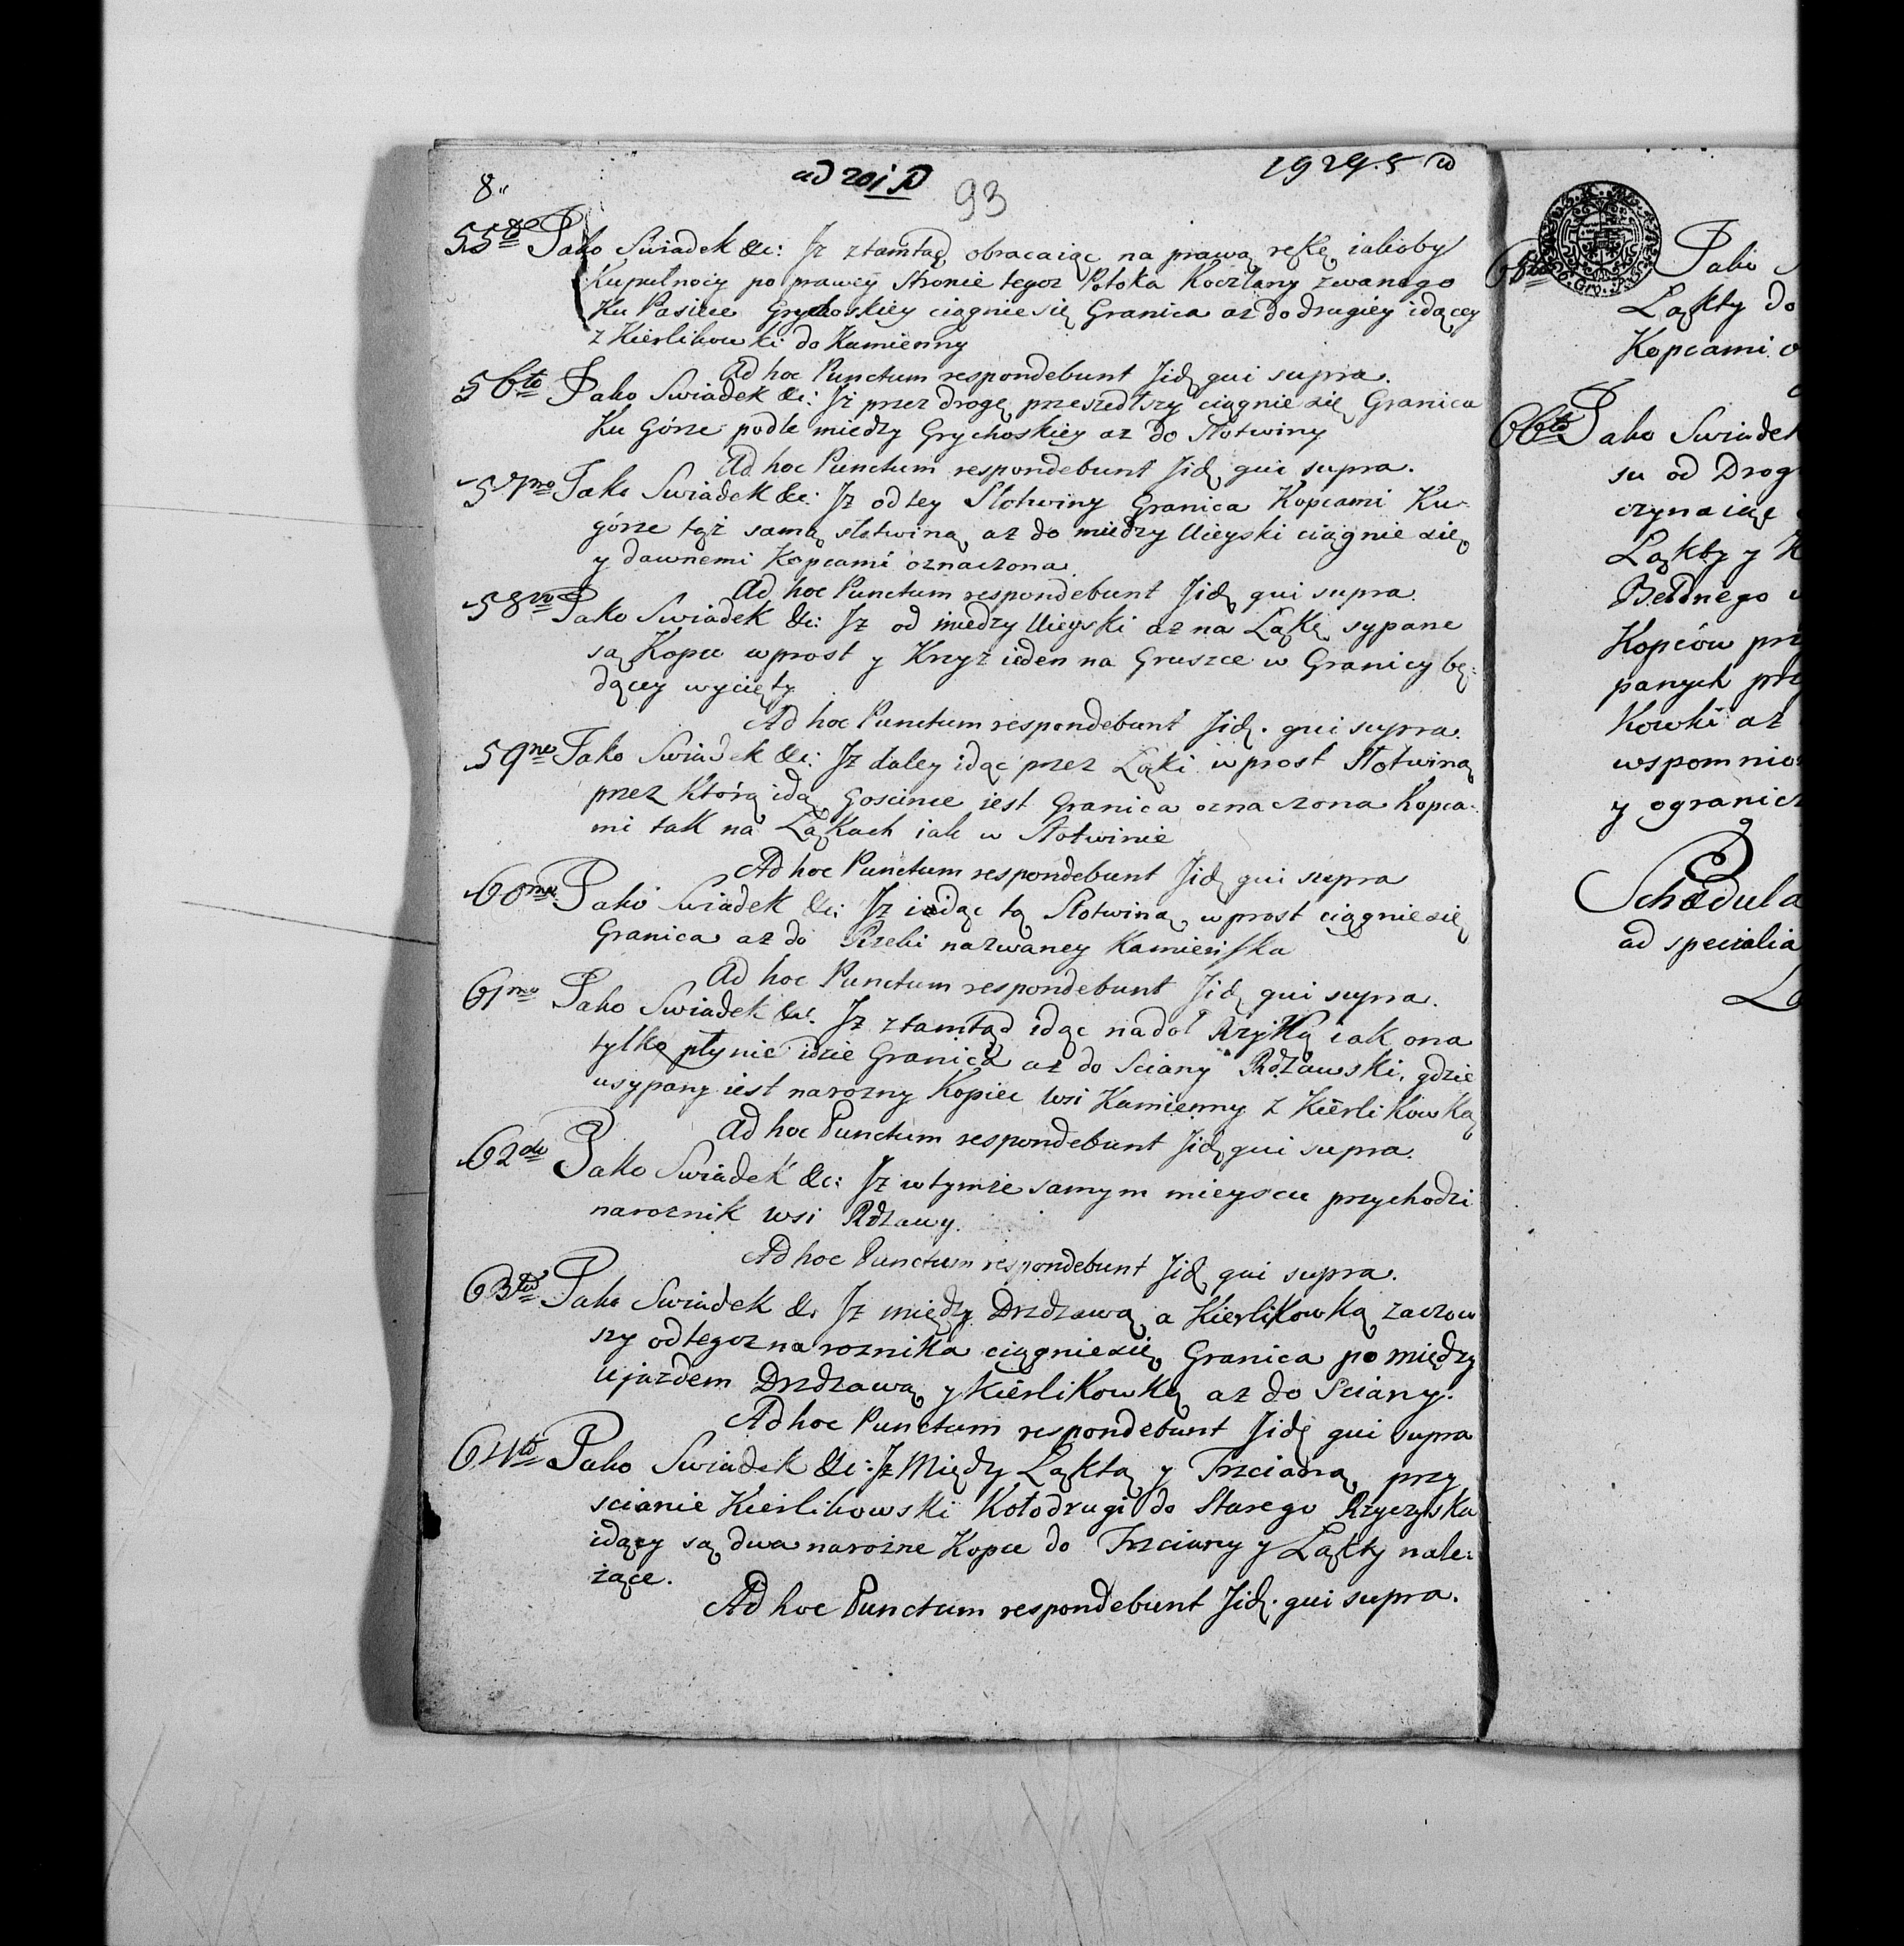 8.
93
55to Jako Swiadek &c: Jz ztamtąd obracaiąc na prawą rękę iakoby
Kupułnocy po prawey Stronie tegoz Potoka Koczlany zwanego
Ku Pasiece Grychoskiey ciągnie się Granica az do drugiey idącey
z Kierlikowki do Kamienny
Ad hoc Punctum respondebunt Jid. qui supra.
56to Jako Swiadek &c: Jż przez drogę przeszedłszy ciągnie się Granica
Ku Górze podle miedzy Grychoskiey az do Słotwiny
Ad hoc Punctum respondebunt Jid. qui supra.
57mo Jako Swiadek &c: Jz od tey Słotwiny Granica Kopcami Ku
górze tąż samą słotwiną az do miedzy Uieyski ciągnie się
y dawnemi Kopcami oznaczona
Ad hoc Punctum respondebunt Jid. qui supra.
58vo Jako Swiadek &c: Jz od miedzy Uieyski az na Łąkę sypane
są Kopce wprost y Krzyz ieden na Gruszce w Granicy bę-
dącey wycięty
Ad hoc Punctum respondebunt Jid. qui supra.
59no Jako Swiadek &c: Jz daley idąc przez Łąki wprost Słotwiną
przez Którą idą Goscince iest Granica oznaczona Kopca-
mi tak na Łąkach iak w Słotwinie
Ad hoc Punctum respondebunt Jid. qui supra
60mo Jako Swiadek &c: Jz idąc tą Słotwiną wprost ciągnie się
Granica az do Rzeki nazwaney Kamieńska
Ad hoc Punctum respondebunt Jid. qui supra.
61mo Jako Swiadek &c: Jz ztamtąd idąc nadoł Rzyką iak ona
tylko płynie idzie Granica az do Sciany Rdzawski, gdzie
usypany iest narozny Kopiec wsi Kamienny z Kierlikowką
Ad hoc Punctum respondebunt Jid. qui supra.
62do Jako Swiadek &c: Jz wtymże samym mieyscu przychodzi
naroznik wsi Rdzawy.
Ad hoc Punctum respondebunt Jid. qui supra.
63tio Jako Swiadek &c Jz między Drzdzawą a Kierlikowką zacząw
szy od tegoz naroznika ciągnie się Granica pomiędzy
Ujazdem Drzdzawą y Kierlikowką az do Sciany.
Ad hoc Punctum respondebunt Jid. qui supra
64to Jako Swiadek &c: Jz Między Łąktą y Trzcianą przy
scianie Kierlikowski Koło drugi do Starego Rzyczyska
idący są dwa narożne Kopce do Trzciany y Łąkty nale-
żące.
Ad hoc Punctum respondebunt Jid. qui supra.
Jako
Łąkty do
Kopcami
66to Jako Swiadek
su od Drog
czynaiąc
Łąkty y
Kopców prz
panych prz
Kowki az
wspomnio
y ogranicz
Schedula
ad specialia